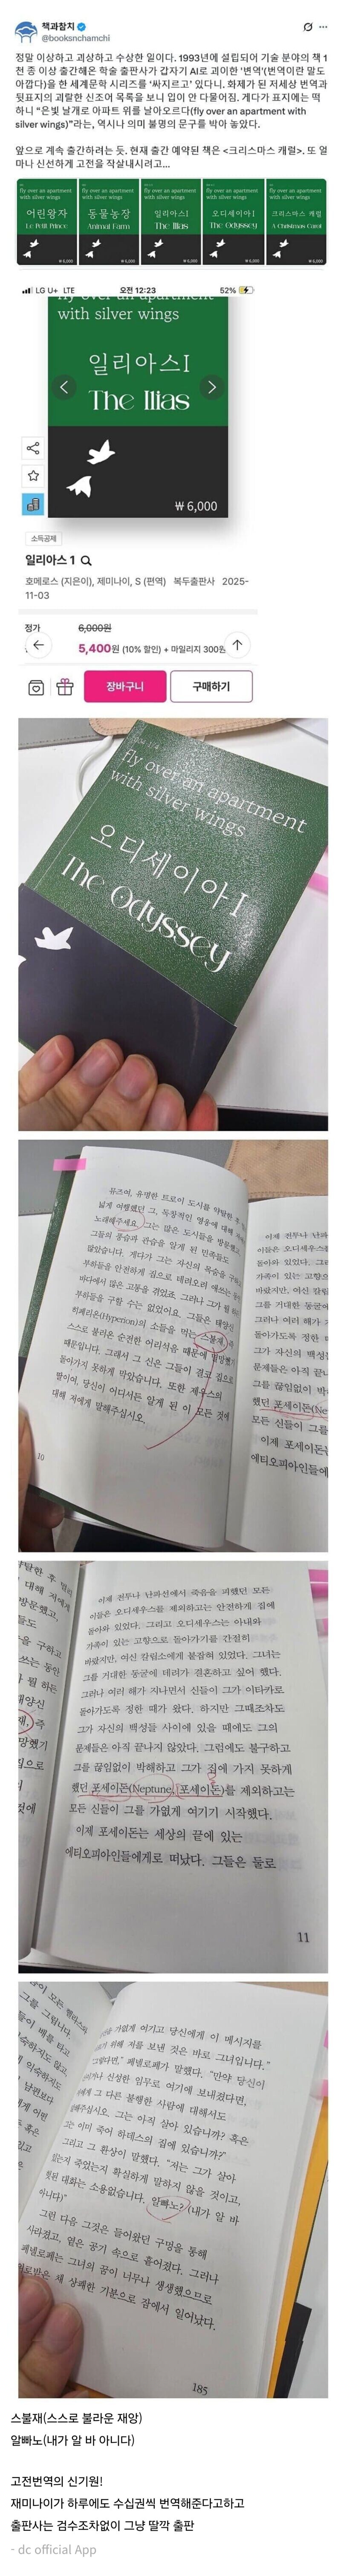 책과참치
@booksnchamchi
정말 이상하고 괴상하고 수상한 일이다. 1993년에 설립되어 기술 분야의 책 1
천 종 이상 출간해온 학술 출판사가 갑자기 AI로 괴이한 '번역'(번역이란 말도
아깝다)을 한 세계문학 시리즈를 '싸지르고' 있다니. 화제가 된 저세상 번역과
뒷표지의 괴랄한 신조어 목록을 보니 입이 안 다물어짐. 게다가 표지에는 떡
하니 "은빛 날개로 아파트 위를 날아오르다(fly over an apartment with
silver wings)"라는, 역시나 의미 불명의 문구를 박아 놓았다.
앞으로 계속 출간하려는 듯. 현재 출간 예약된 책은 <크리스마스 캐럴>. 또 얼
마나 신선하게 고전을 작살내시려고...
fly over an apartment with silver wings
어린왕자
Le Petit Prince
₩ 6,000
fly over an apartment with silver wings
동물농장
Animal Farm
₩ 6,000
fly over an apartment with silver wings
일리아스 I
The Ilias
₩ 6,000
fly over an apartment with silver wings
오디세이아 I
The Odyssey
₩ 6,000
fly over an apartment with silver wings
크리스마스 캐럴
A Christmas Carol
₩ 6,000
LG U+ LTE 오전 12:23 52%
fly over an apartment
with silver wings
일리아스I
The Ilias
₩ 6,000
소득공제
일리아스 1
호메로스 (지은이), 제미나이, S (편역) 복두출판사 2025-
11-03
정가 6,000원
5,400원 (10% 할인) + 마일리지 300원
장바구니 구매하기
fly over an apartment
with silver wings
오디세이아I
The Odyssey
뮤즈여, 유명한 트로이 도시를 약탈한 후
넓게 여행했던 그, 독창적인 영웅에 대해
노래해주세요. 그는 많은 도시들을 방문했고
그들의 풍습과 관습을 알게 된 민족들도
많았습니다. 게다가 그는 자신의 목숨을 구하고
부하들을 안전하게 집으로 데려오려 애쓰는 동안
바다에서 많은 고통을 겪었죠. 그러나 그가
부하들을 구할 수는 없었어요. 그들은 태양신
히페리온(Hyperion)의 소들을 먹는 스불재, 즉
스스로 불러온 순전한 어리석음 때문에 멸망했기
때문입니다. 그래서 그 신은 그들이 결코 집으로
돌아가지 못하게 막았습니다. 또한 제우스의
딸이여, 당신이 어디서든 알게 된 이 모든 것에
대해 저에게 말해주십시오.
10
이제 전투나 난파선에서 죽음을 피했던 모든
이들은 오디세우스를 제외하고는 안전하게 집에
돌아와 있었다. 그리고 오디세우스는 아내와
가족이 있는 고향으로 돌아가기를 간절히
바랐지만, 여신 칼립소에게 붙잡혀 있었다. 그녀는
그를 거대한 동굴에 데려가 결혼하고 싶어 했다.
그러나 여러 해가 지나면서 신들이 그가 이타카로
돌아가도록 정한 때가 왔다. 하지만 그때조차도
그가 자신의 백성들 사이에 있을 때에도 그의
문제들은 아직 끝나지 않았다. 그럼에도 불구하고
그를 끊임없이 박해하고 그가 집에 가지 못하게
했던 포세이돈(Neptune, 포세이돈)를 제외하고는
모든 신들이 그를 가엾게 여기기 시작했다.
이제 포세이돈는 세상의 끝에 있는
에티오피아인들에게로 떠났다. 그들은 둘로
11
가엾게 여기고 당신에게 이 메시지를
위해 저를 보낸 것은 바로 그녀입니다."
"그렇다면," 페넬로페가 말했다. "만약 당신이
신성한 임무로 여기에 보내졌다면,
그 다른 불행한 사람에 대해서도
말해주십시오. 그는 아직 살아 있습니까? 혹은
이미 죽어 하데스의 집에 있습니까?"
그리고 그 환상이 말했다. "저는 그가 살아
있는지 죽었는지 확실하게 말하지 않을 것이고,
헛된 대화는 소용없습니다. 알빠노? (내가 알 바
아니다)"
그런 다음 그것은 들어왔던 구멍을 통해
사라졌고, 옅은 공기 속으로 흩어졌다. 그러나
페넬로페는 그녀의 꿈이 너무나 생생했으므로
채 상쾌한 기분으로 잠에서 일어났다.
185
스불재(스스로 불라운 재앙)
알빠노(내가 알 바 아니다)
고전번역의 신기원!
재미나이가 하루에도 수십권씩 번역해준다고하고
출판사는 검수조차없이 그냥 딸깍 출판
- dc official App